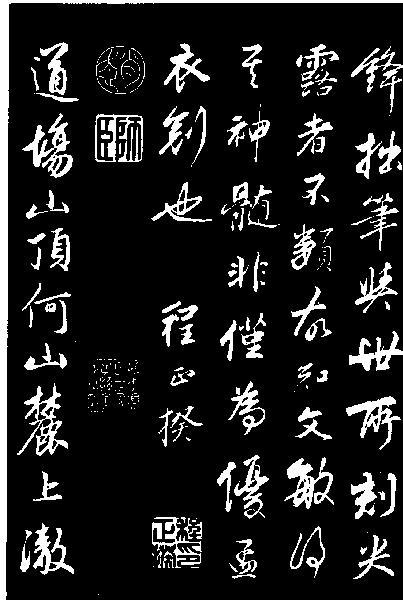 鋒拙筆與世所刻尖
露者不類故知文敏得
其神髓非僅為優孟
衣冠也 程正揆
程印正揆
道場山頂何山麓上澈